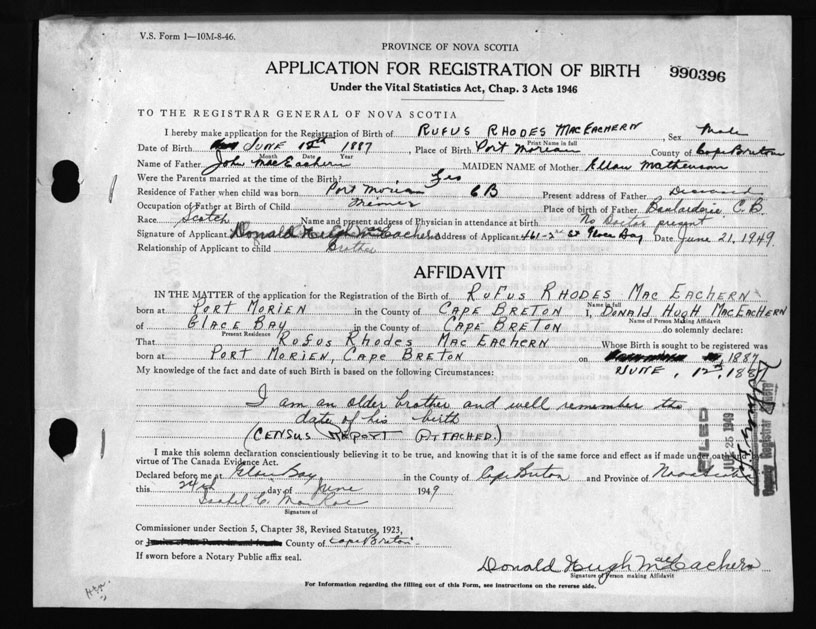 V.S. Form 1—10M-8-46.
PROVINCE OF NOVA SCOTIA
APPLICATION FOR REGISTRATION OF BIRTH 990396
Under the Vital Statistics Act, Chap. 3 Acts 1946
TO THE REGISTRAR GENERAL OF NOVA SCOTIA
I hereby make application for the Registration of Birth of RUFUS RHODES MACEACHERN Sex Male
Print Name in full
Date of Birth JUNE 12th 1887 Place of Birth Port Morien County of Cape Breton
Month Date Year
Name of Father John MacEachern MAIDEN NAME of Mother Ellan Matheuson
Were the Parents married at the time of the Birth? Yes
Residence of Father when child was born Port Morien CB Present address of Father Deceased
Occupation of Father at Birth of Child Place of birth of Father Boularderie C.B.
Race Scotch Name and present address of Physician in attendance at birth No Doctor present
Signature of Applicant Donald Hugh MacEachern Address of Applicant 461-2nd St Glace Bay Date June 21, 1949
Relationship of Applicant to child Brother
AFFIDAVIT
IN THE MATTER of the application for the Registration of the Birth of RUFUS RHODES MAC EACHERN
Name in full
born at PORT MORIEN in the County of CAPE BRETON I, DONALD HUGH MACEACHERN
Name of Person Making Affidavit
of GLACE BAY in the County of CAPE BRETON do solemnly declare:
Present Residence
That RUFUS RHODES MAC EACHERN Whose Birth is sought to be registered was
born at PORT MORIEN, CAPE BRETON on 1887
JUNE, 12th, 1887
My knowledge of the fact and date of such Birth is based on the following Circumstances:
I am an older brother and well remember the
date of his birth
(CENSUS REPORT ATTACHED.)
I make this solemn declaration conscientiously believing it to be true, and knowing it is of the same force and effect as if made under oath and by
virtue of The Canada Evidence Act.
Declared before me at Glace Bay in the County of Cape Breton and Province of Nova Scotia
this 24th day of June 1949
Isabel C. MacRae
Signature of
Commissioner under Section 5, Chapter 38, Revised Statutes, 1923,
or County of Cape Breton
If sworn before a Notary Public affix seal.
Donald Hugh MacEachern
Signature of Person making Affidavit
For Information regarding the filling out of this Form, see instructions on the reverse side.
FILED
1949